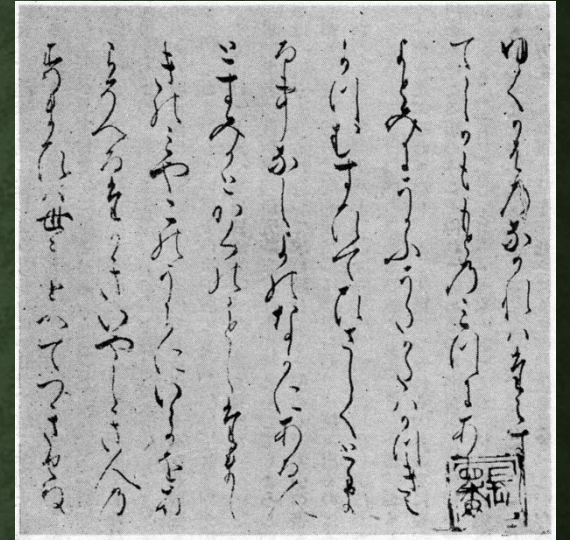 ゆくかはのなかれはたえす
てしかももとのみつにあ
よとみにうかふうたかたはかつきえ
かつむすひてひさしくとゝま
る事なしよのなかにあるひ
とすみかとかくのことしたまし
きのみやこのうちにいらかをあ
らそへるたかきいやしき人の
すまひは世々をへてつきせぬ